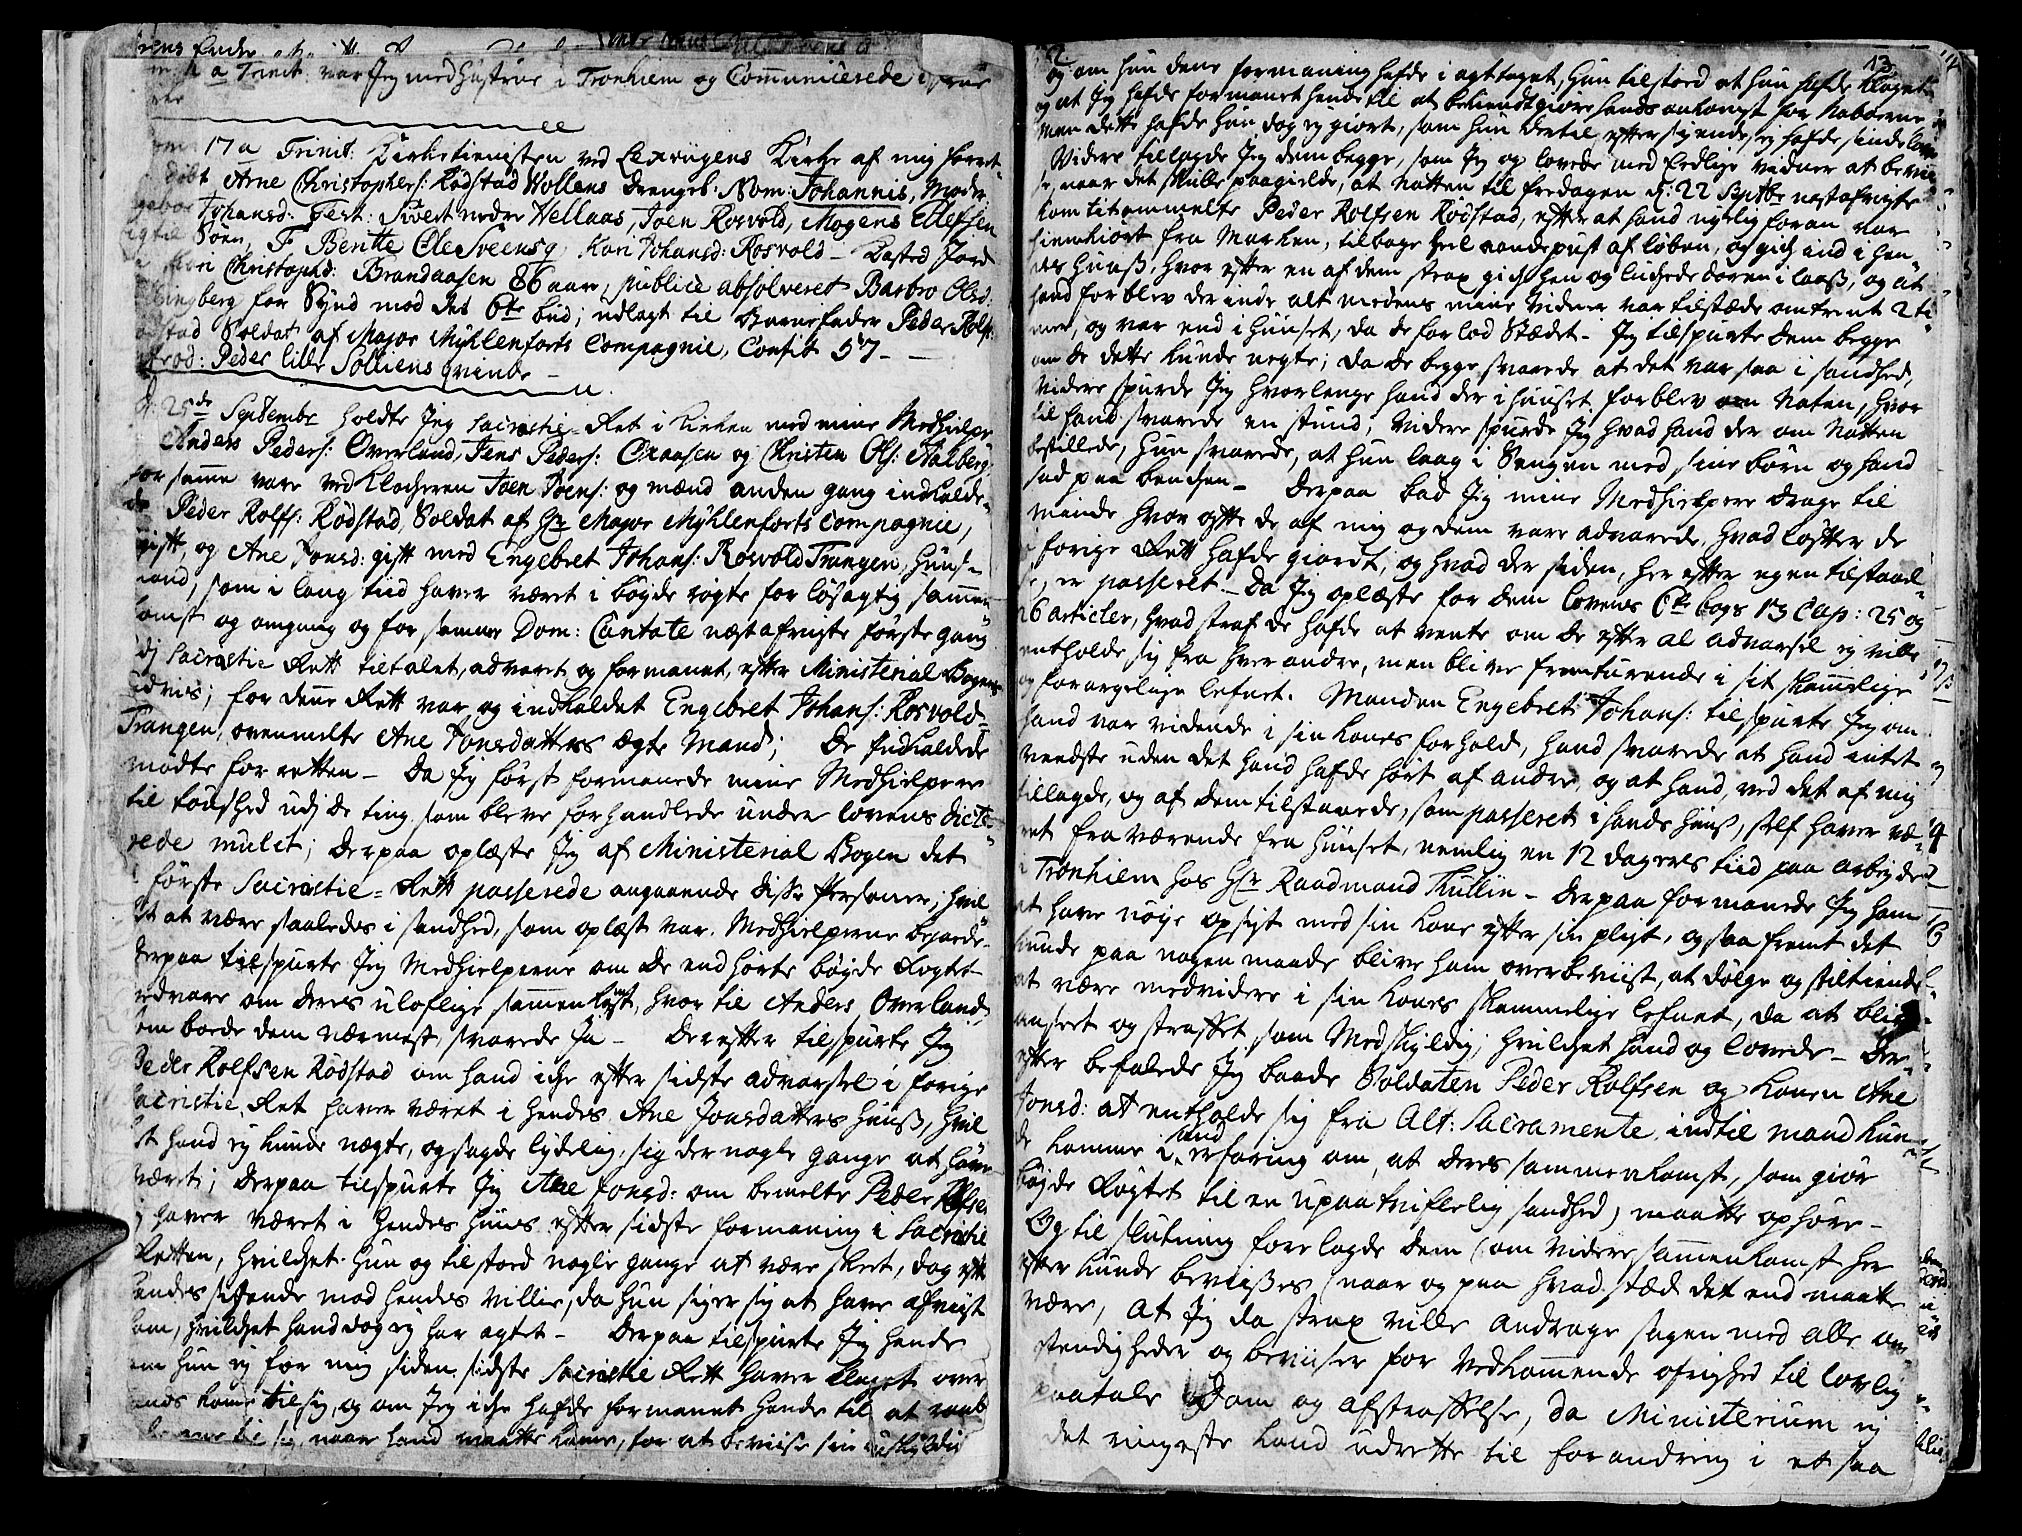 a Trinit: var Jeg med Hustrue i Tronhiem og Communicerede
17 a Trinit: Kirketienisten ved Lexvigens Kirke af mig forret-
døbt Arne Christophers: Rødstad Vollens drengeb: Nom: Johannis, Moder
Johansd: Test: Sivert nedre Hellaas, Joen Rosvold, Mogens Ellefsen
Søen, F Bentte Ole Sveens q. Kari Johansd: Rosvold - Kasted Jord
Kari Christophd: Brandaasen 86 aar, publicè absolveret Barbro Olsd:
Ringberg for Synd mod det 6te bud; udlagt til Barnefader Peder Rolfs:
Rødstad Soldat af Major Mühlenforts Compagnie, Confit 57 -
introd: Peder lille Solliens qvinde -
d: 25de September holdte Jeg Sacristie-Ret i Kirken med mine Medhielper
Anders Peders: Overland, Jens Peders: Oxaasen og Christen Ols: Aalberg
for samme vare ved Klocheren Joen Joens: og mænd anden gang indkalde-
de Peder Rolfs: Rødstad, Soldat af Hr Major Mühlenforts Compagnie,
gift, og Ane Jonsd: gift med Engebret Johans: Rosvold Trangen, Huus-
mand, som i lang tiid haver været i bøyde rögte for løsagtig sammen
komst og omgang og for samme Dom: Cantate næst afvigte første gang
udj Sacristie Rett tiltalet, advaret og formanet, efter Ministerial Bogens
udviis; for denne Rett var og indkaldet Engebret Johans: Rosvold-
Trangen, ovenmelte Ane Jonsdatters ægte Mand; De Indkaldede
mødte for retten - Da Jeg først formanede mine Medhielpere
til taushed udj de ting som bleve forhandlede under lovens dicte-
rede mulct; Derpaa oplæste Jeg af Ministerial Bogen det
i første Sacristie-Rett passerede angaaende disse Personer; hvil
ket at være saaledes i sandhed, som oplæst var, Medhielperne bejaede.
Derpaa tilspurte Jeg Medhielperne om de end hørte bøyde Rögtet
vedvare om deres ulovlige sammenkomst, hvor til Anders Overland
som boede dem nærmest svarede Ja - Derefter tilspurte Jeg
Peder Rolfsen Rødstad om hand iche efter sidste advarsel i forige
Sacristie Ret haver været i hendes Ane Jonsdatters Huuß, hvil
ket hand ey kunde nægte, og sagde lydelig, sig der nogle gange at have
været; Derpaa tilspurte Jeg Ane Jonsd: om bemelte Peder Rolfsen
ey haver været i hendes Huus efter sidste formaning i Sacristie
Retten, hvilchet hun og tilstoed nogle gange at være skeet, dog efter
hendes sigende mod hendes Villie, da hun siger sig at have afviist
ham, hvilchet hand dog ey har agtet - Derpaa tilspurte Jeg hende
om hun ey for mig siden sidste Sacristie Rett haver klaget over
hands komme til sig, og om Jeg iche hafde formanet hende til at raab
naar hand maatte komme, for at beviise sin uskyldig
13
og om hun denne formaning hafde i agt taget, hun tilstoed at hun hafde klaget
og at Jeg hafde formanet hende til at bekiendtgiøre hands ankomst for Naboerne
men dette hafde hun dog ey giort, som hun dertil efter sigende, ey hafde sinde
Videre tillagde Jeg dem begge, som Jeg og lovede med Eedlige vidner at bevii
se, naar det skulle paagielde, at Natten til fredagen d: 22 Septbr næst afvigte
kom titommelte Peder Rolfsen Rødstad, efter at hand nylig foran var
hiemkiørt fra Marken, tilbage heel aandepust af løben, og gich ind i hen-
des Huuß, hvor efter en af dem strax gich hen og luchede døren i laaß, og at
hand forblev der inde alt medens mine Vidner var tilstæde omtrent 2 ti-
mer, og var end i Huuset, da de forlod Stædet - Jeg tilspurte dem begge
om de dette kunde negte; da de begge svarede at det var saa i sandhed,
Videre spurde Jeg hvorlenge hand der i Huuset forblev om Naten, hvor
til hand svarede en stund; Videre spurde Jeg hvad hand der om Natten
bestillede, hun svarede, at hun laag i Sengen med sine børn og hand
sad paa benchen - Derpaa bad Jeg mine Medhielpere drage til
minde hvor ofte de af mig og dem vare advarede, hvad løfter de
i forige Rett hafde giordt, og hvad der siden, her efter egen tilstaael
se, er passeret - Da Jeg oplæste for dem Lovens 6te bogs 13 Cap: 25 og
26 articler, hvad straf de hafde at vente om de efter al advarsel ey ville
entholde sig fra hver andre, men blive fremturende i sit skammelige
og forargelige lefnet. Manden Engebret Johans: tilspurte Jeg om
hand var vidende i sin kones forhold, hand svarede at hand intet
veedste uden det hand hafde hørt af andre, og at hand, ved det af mig
tillagde, og af dem tilstaaede, som passeret i hands huuß, self haver væ-
ret fraværende fra Huuset, nemlig en 12 dagers tiid paa arbeyde
i Tronhiem hos Hr Raadmand Thullin - Derpaa formanede Jeg ham
at have nöye opsyt med sin kone efter sin pligt, og saafremt det
kunde paa nogen maade blive ham overbeviist, at dølge og stiltiende
at være medvidere i sin kones skammelige lefnet, da at blive
anseet og straffet, som Medskyldig; hvilchet hand og lovede - Der-
efter befalede Jeg baade Soldaten Peder Rolfsen og konen Ane
Jonsd: at entholde sig fra Alt: Sacramente, indtil mand kun-
de komme i und erfaring om, at deres sammenkomst, som giør
bøyde Rögtet til en upaatvifelig sandhed, maatte ophøre -
Og til slutning forelagde dem (om videre sammenkomst her
efter kunde beviises) naar og paa hvad stæd det end maatte
være, at Jeg da strax ville andrage sagen med alle om-
stendigheder og beviiser for vedkommende øfrighed til lovlig
paatale Dom og afstraffelse, da Ministerium ey
det ringeste kand udrette til forandring i et saa